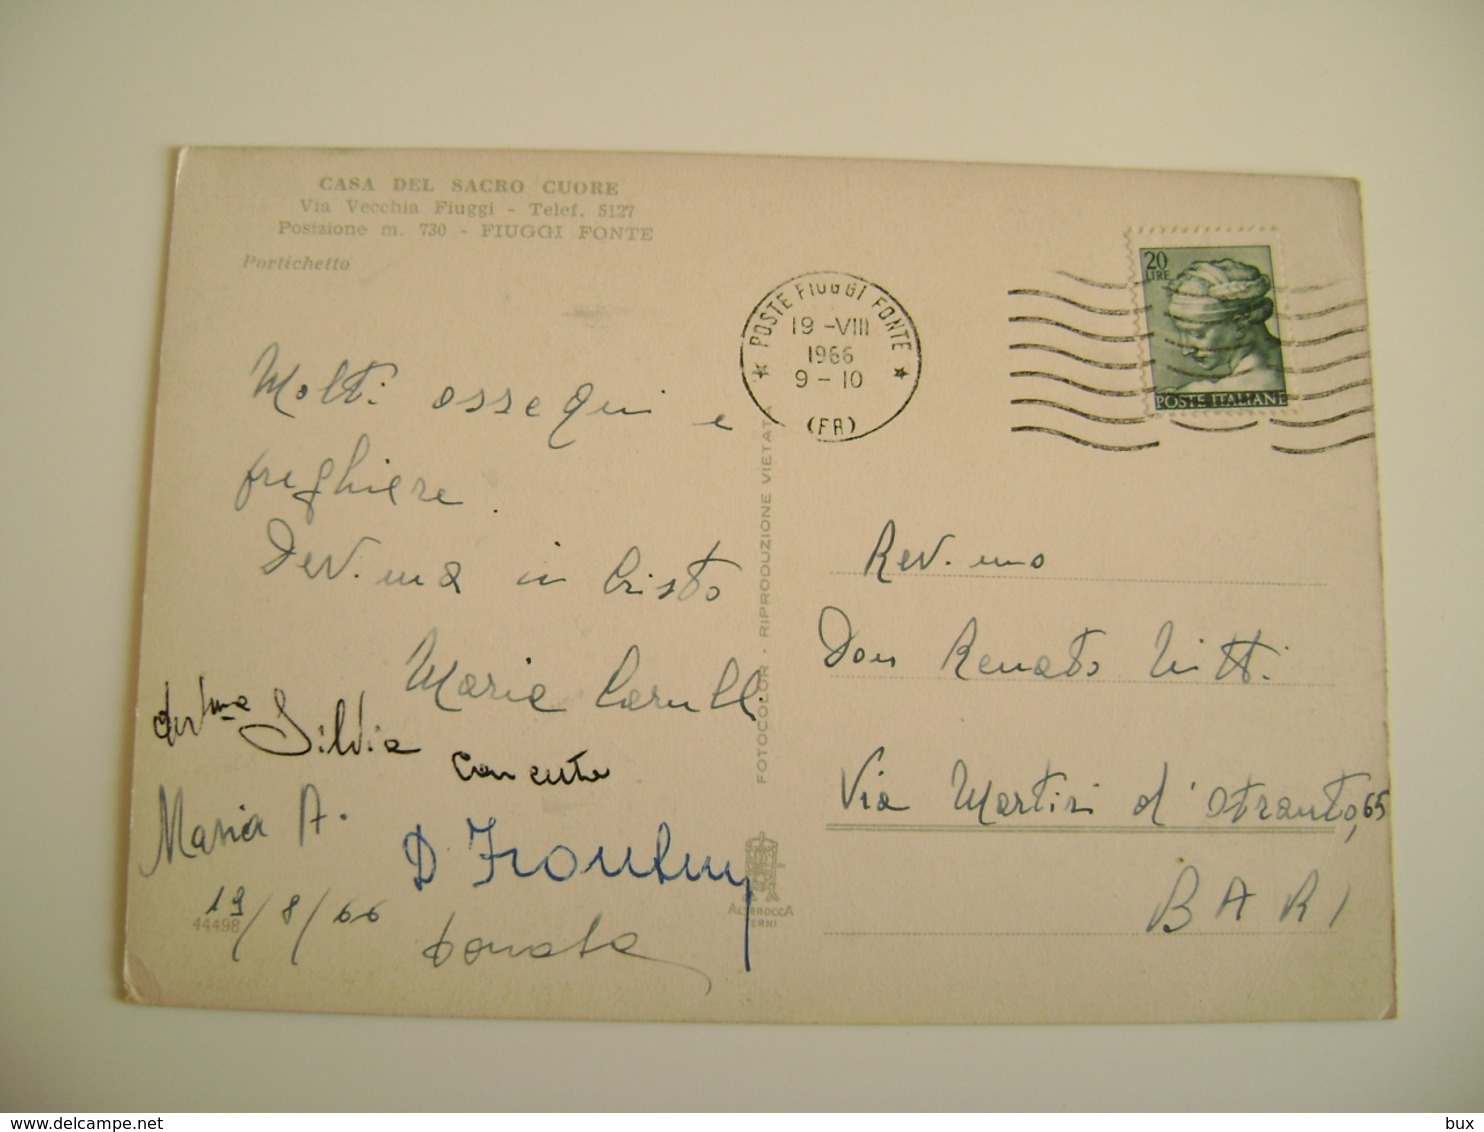 CASA DEL SACRO CUORE
Via Vecchia Fiuggi - Telef. 5127
Posizione m. 730 - FIUGGI FONTE
Portichetto
Molti ossequi e
preghiere.
Dev.ma in Cristo
Maria Carulli
dev.ma Silvia
Maria A.
D.
19/8/66
Donata
44498
FOTOCOLOR - RIPRODUZIONE VIETATA
ALTEROCCA
TERNI
POSTE FIUGGI FONTE
19 -VIII
1966
9 - 10
(FR)
20
LIRE
POSTE ITALIANE
Rev.mo
Don Renato Vitti
Via Martiri d'Otranto, 65
BARI
delcampe.net
bux